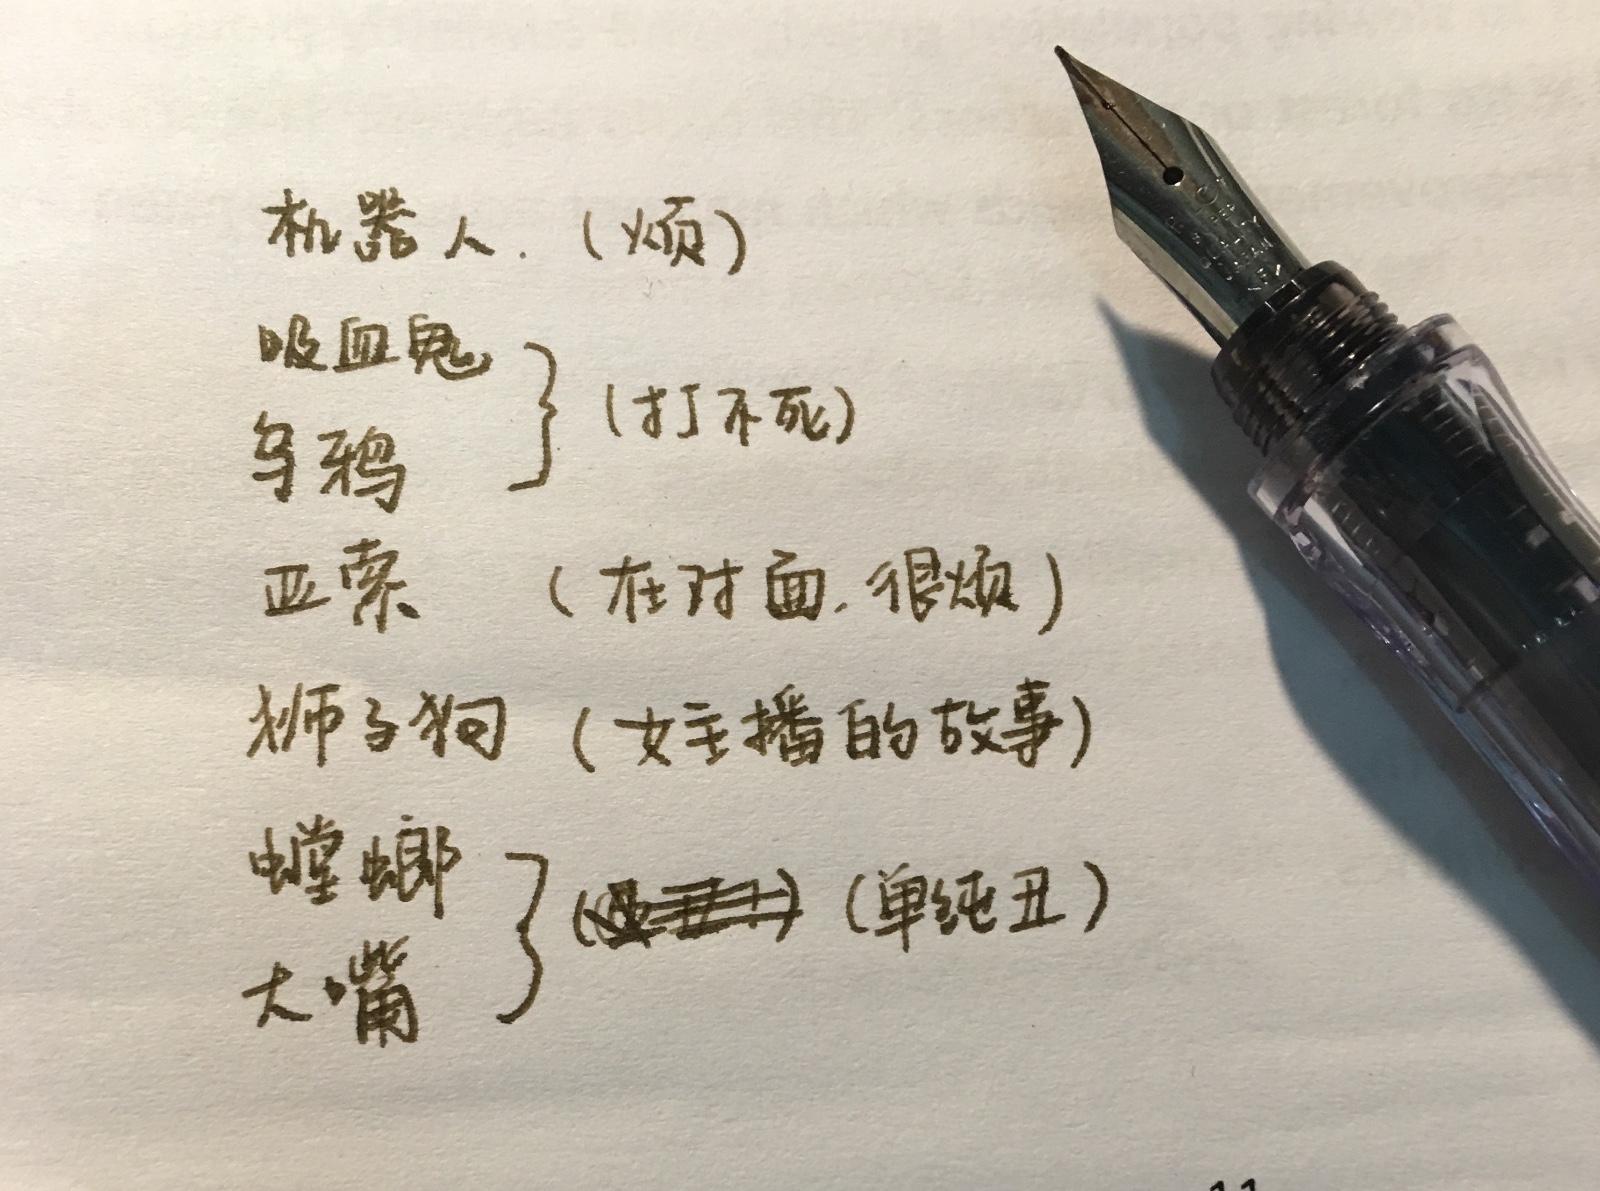 机器人.（烦）
吸血鬼
乌鸦
（打不死）
亚索（在对面.很烦）
狮子狗（女主播的故事）
螳螂
大嘴
（单纯丑）
11